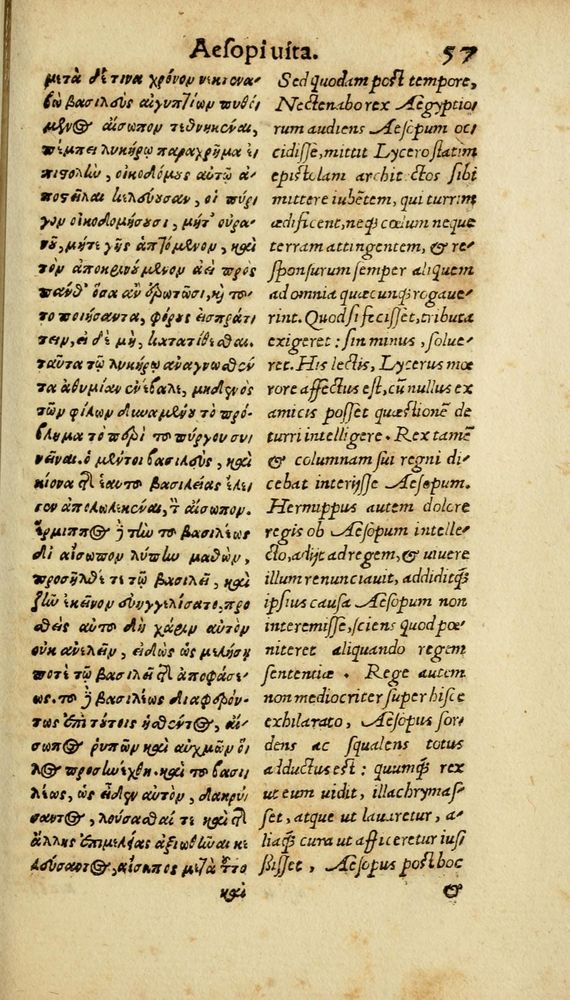 Aesopi uita. 57
μετὰ δέ τινα χρόνον νεκτενα-
βὼ βασιλεὺς αἰγυπτίων πυθό-
μενος αἴσωπον τεθνηκέναι,
πέμπει λυκήρῳ παραχρῆμα ἐ-
πιστολὴν, οἰκοδόμους αὐτῷ ἀ-
ποστεῖλαι κελεύουσαν, οἳ πύρ-
γον οἰκοδομήσουσι, μήτ' οὐρα-
νοῦ, μήτε γῆς ἁπτόμενον, καὶ
τὸν ἀποκρινούμενον ἀεὶ πρὸς
πανθ' ὅσα ἂν ἐρωτῶσι, καὶ το-
το ποιήσαντα, φόρους εἰσπράτ-
τειν, εἰ δὲ μὴ, κατατίθεσθαι.
ταῦτα τῷ λυκήρῳ ἀναγνωσθέν
τα ἀθυμίαν ἐνέβαλε, μηδενὸς
τῶν φίλων δυναμένου τὸ πρό-
βλημα τὸ περὶ το πύργου συνι
νέναι. ὁ μέντοι βασιλεὺς, καὶ
κίονα τῆς ἑαυτο βασιλείας ἔλε-
γεν ἀπολωλεκέναι, τ αἴσωπον.
ἕρμιππος δὲ τὴν το βασιλέως
δι αἴσωπον λύπην μαθὼν,
προσῆλθέ τε τῷ βασιλεῖ, καὶ
ζῆν ἐκεῖνον εὐηγγελίσατο, προ
θεὶς αὐτο δὴ χάριν αὐτὸν
οὐκ ἀνελεῖν, εἰδὼς ὡς μελήσῃ
ποτὲ τῷ βασιλεῖ τῆς ἀποφάσε-
ως. το δὲ βασιλέως διαφερόν-
τως ἐπὶ τούτοις ἡσθέντος, αἴ-
σωπος ῥυπῶν καὶ αὐχμῶν ὅ-
λος προσηνέχθη. καὶ το βασι
λέως, ὡς εἶδεν αὐτὸν, δακρύ-
σαντος, λούσασθαί τε καὶ τῆς
ἄλλης ἐπιμελείας ἀξιωθῆναι κε
λεύσαντος, αἴσωπος μετὰ τοτο
καὶ
Sed quodam post tempore,
Nectenabo rex Aegyptio-
rum audiens Aesopum oc-
cidisse, mittit Lycero statim
epistolam archit ctos sibi
mittere iubẽtem, qui turrim
ædificent, neq; cœlum neque
terram attingentem, & re-
sponsurum semper aliquem
ad omnia quæcunq; rogaue-
rint. Quod si fecisset, tributa
exigeret: sin minus, solue-
ret. His lectis, Lycerus mœ
rore affectus est, cũ nullus ex
amicis posset quæstionẽ de
turri intelligere. Rex tamẽ
& columnam sui regni di-
cebat interijsse Aesopum.
Hermippus autem dolore
regis ob Aesopum intelle-
cto, adijt ad regem, & uiuere
illum renunciauit, addiditq́;
ipsius causa Aesopum non
interemisse, sciens quod pœ-
niteret aliquando regem
sententiæ. Rege autem
non mediocriter super hisce
exhilarato, Aesopus sor-
dens ac squalens totus
adductus est: quumq; rex
ut eum uidit, illachrymas-
set, atque ut lauaretur, a-
liaq; cura ut afficeretur ius-
sisset, Aesopus post hoc
&